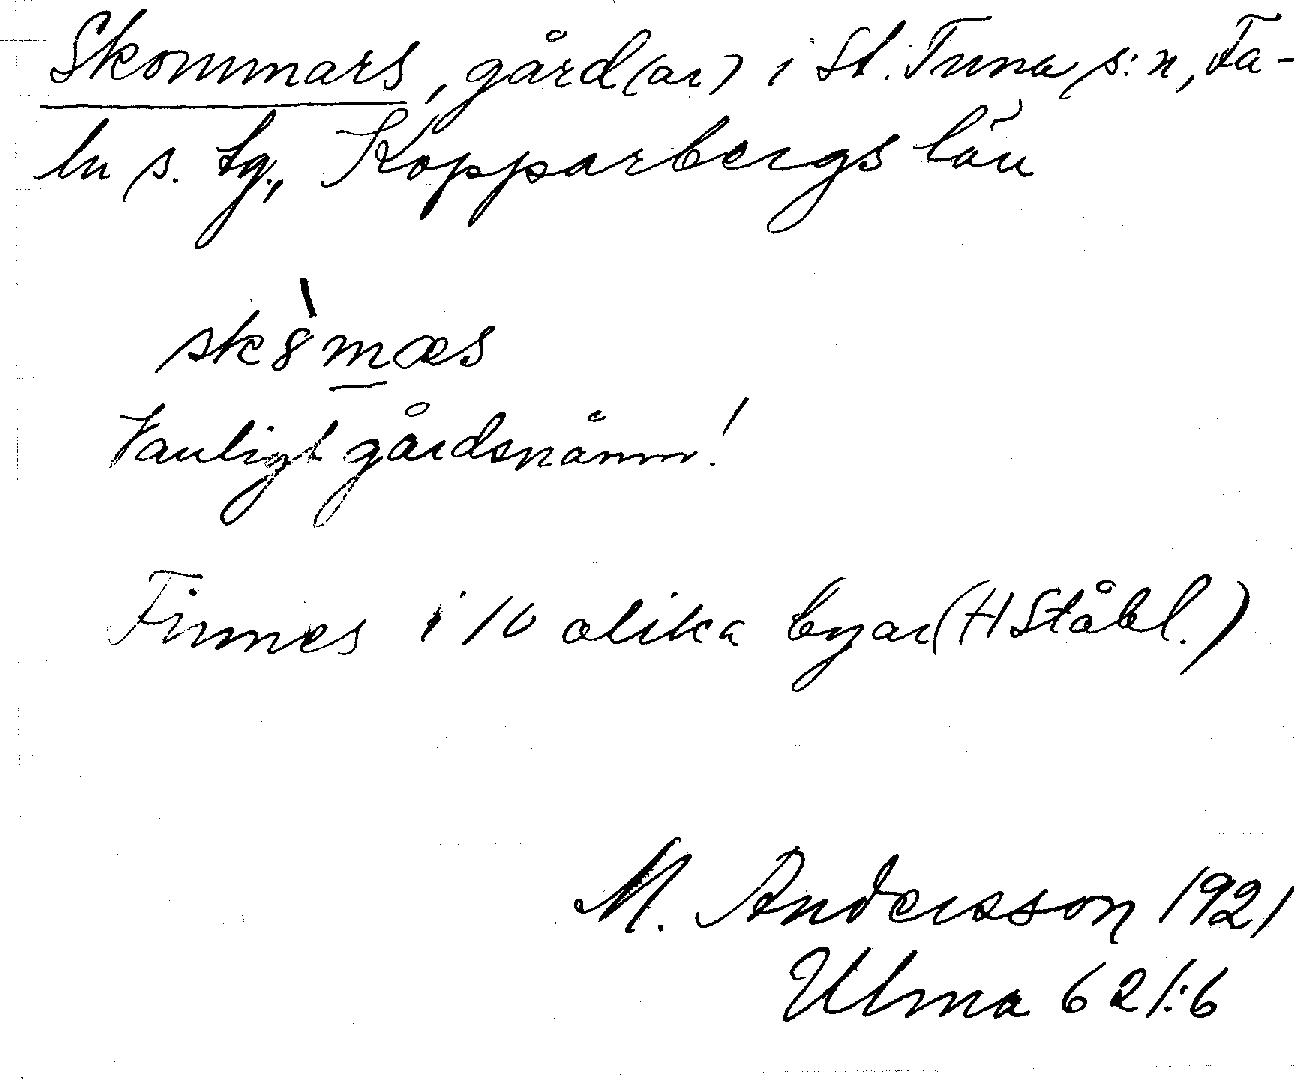 Skommars, gård(ar) i St. Tuna s:n, Fa-
lu s. tg., Kopparbergs län
sk8̀mæs
Vanligt gårdsnamn!
Finnes i 10 olika byar (H Ståhl.)
M. Andersson 1921
Ulma 621:6